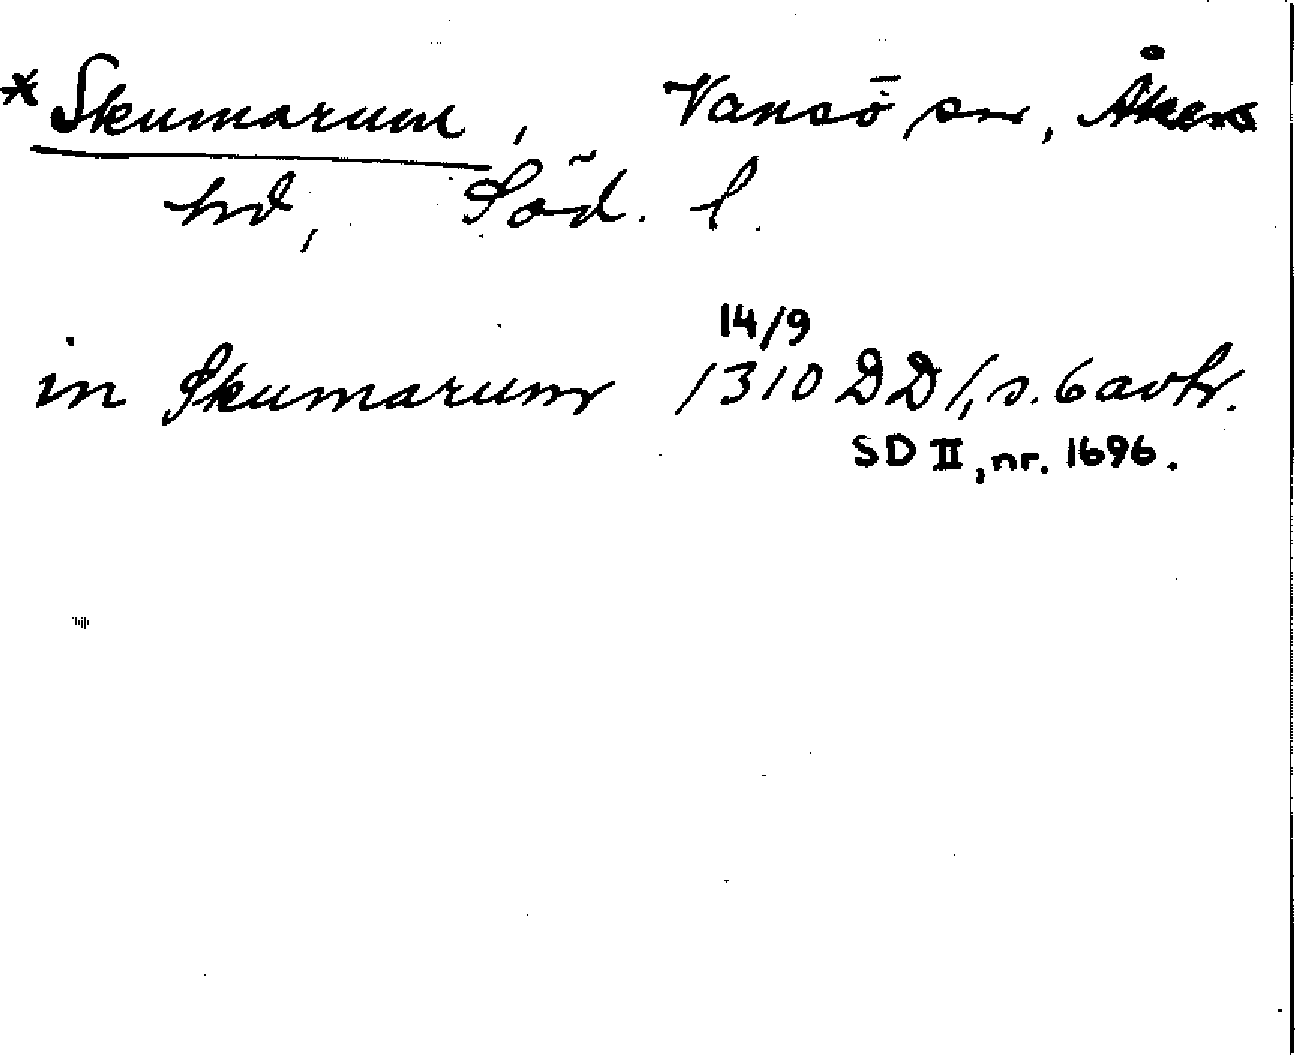 * Skumarum, Vansö sn, Åkers
hd, Söd. l.
14/9
in Skumarum 1310 DD 1, s. 6 avtr.
SD II, nr. 1696.